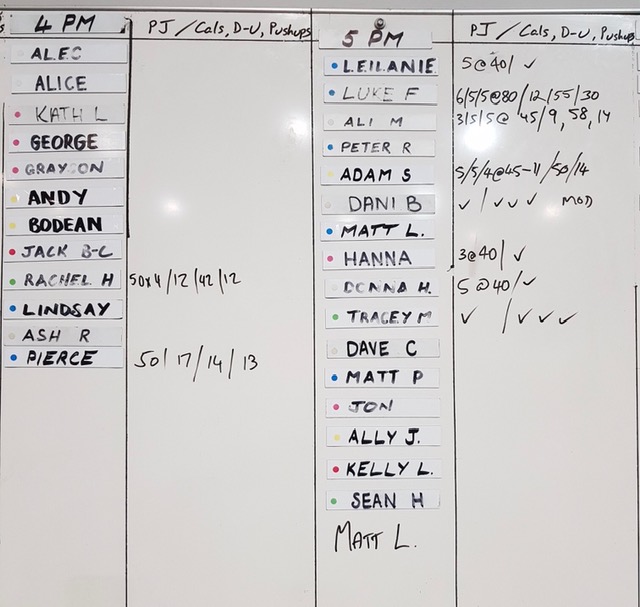 4 PM
PJ/Cals, D-U, Pushups
ALEC
ALICE
KATH L
GEORGE
GRAYSON
ANDY
BODEAN
JACK B-C
RACHEL H 50x4/12/42/12
LINDSAY
ASH R
PIERCE 50/17/14/13
5 PM
PJ/Cals, D-U, Pushups
LEILANIE 5@40/✓
LUKE F 6/5/5@80/12/55/30
ALI M 3/5/5@45/9, 58, 14
PETER R
ADAM S 5/5/4@45-11/50/14
DANI B ✓/✓✓✓ MOD
MATT L.
HANNA 3@40/✓
DONNA H. 5@40/✓
TRACEY M ✓ /✓✓✓
DAVE C
MATT P
JON
ALLY J.
KELLY L.
SEAN H
MATT L.